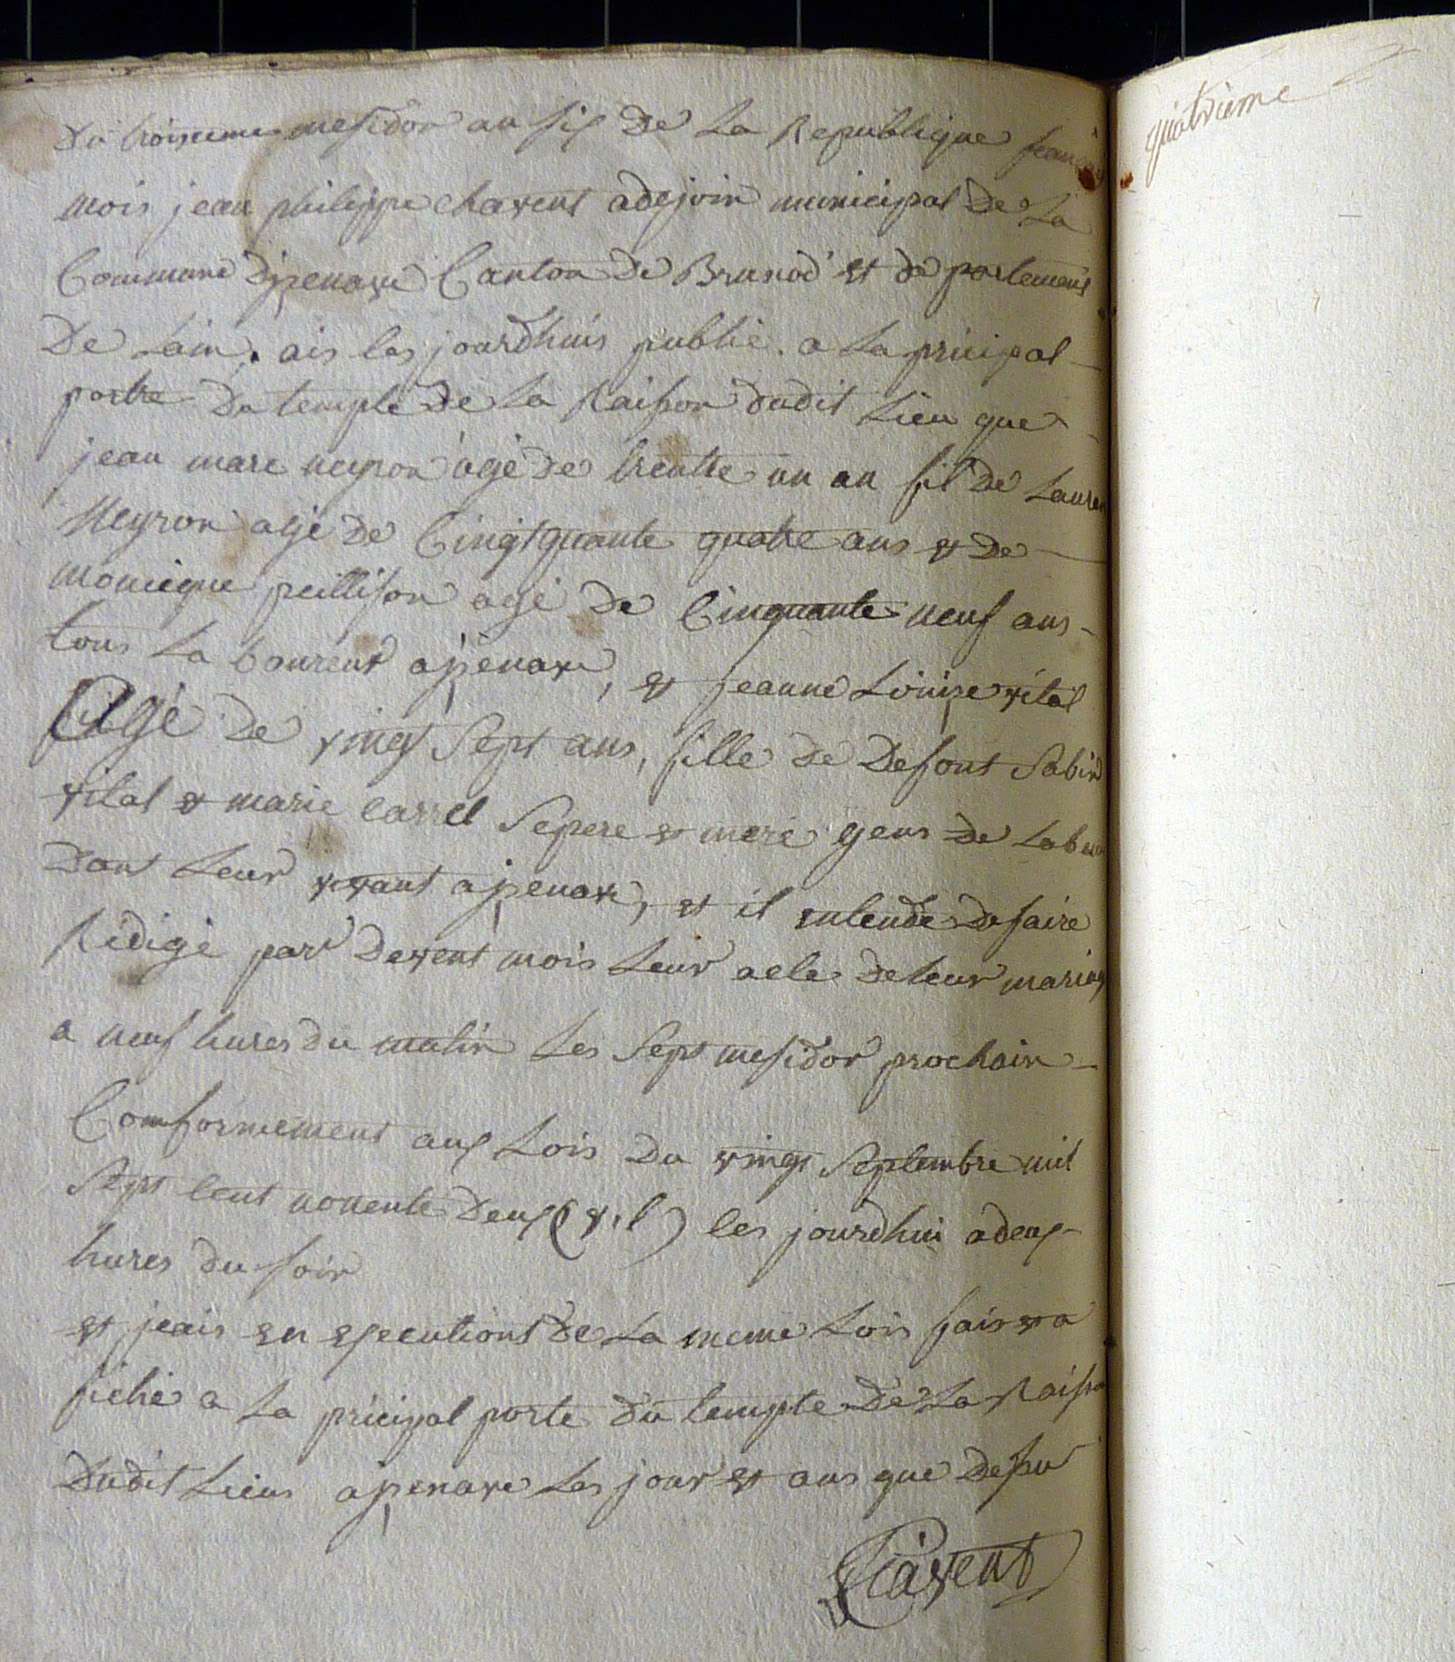 Du troisieme mesidor an six De La Republique fran
mois jean philippe chavent adejoin municipal De La
Commune Dizenave Canton De Brunod et de partement
De Lain, ais les jourdhuis publie a La pricipal
portre Du temple De La Raison dudit Lieu que
jean marc neyron agé De trentte un an fil De Lauren
Neyron agé De Cingtquante quatre ans et De
monicque peillison agé De Cinquante neuf ans
tous La bourent a jzenave, et jeanne Louise vital
Agé De vingt Sept ans, fille De Defont Sabin
vital et marie carrel Sepere et mere gens De Labeu
Dont Leur vivant a jzenave, et il entende De faire
Redigé par Devent mois Leur acte De Leur mariag
a neuf hures du matin Les Sept mesidor prochain
Comformement aux Lois Du vingt Septembre mil
Sept Cent nonente Deux (v.s.) les jourdhui a deux
hures du soir
et jeais en execution De La meme Lois fait et a
fiché a La pricipal porte du temple De La Raison
Dudit Lieu a jzenave Les jour et ans que Desu
Chavent
quatrieme